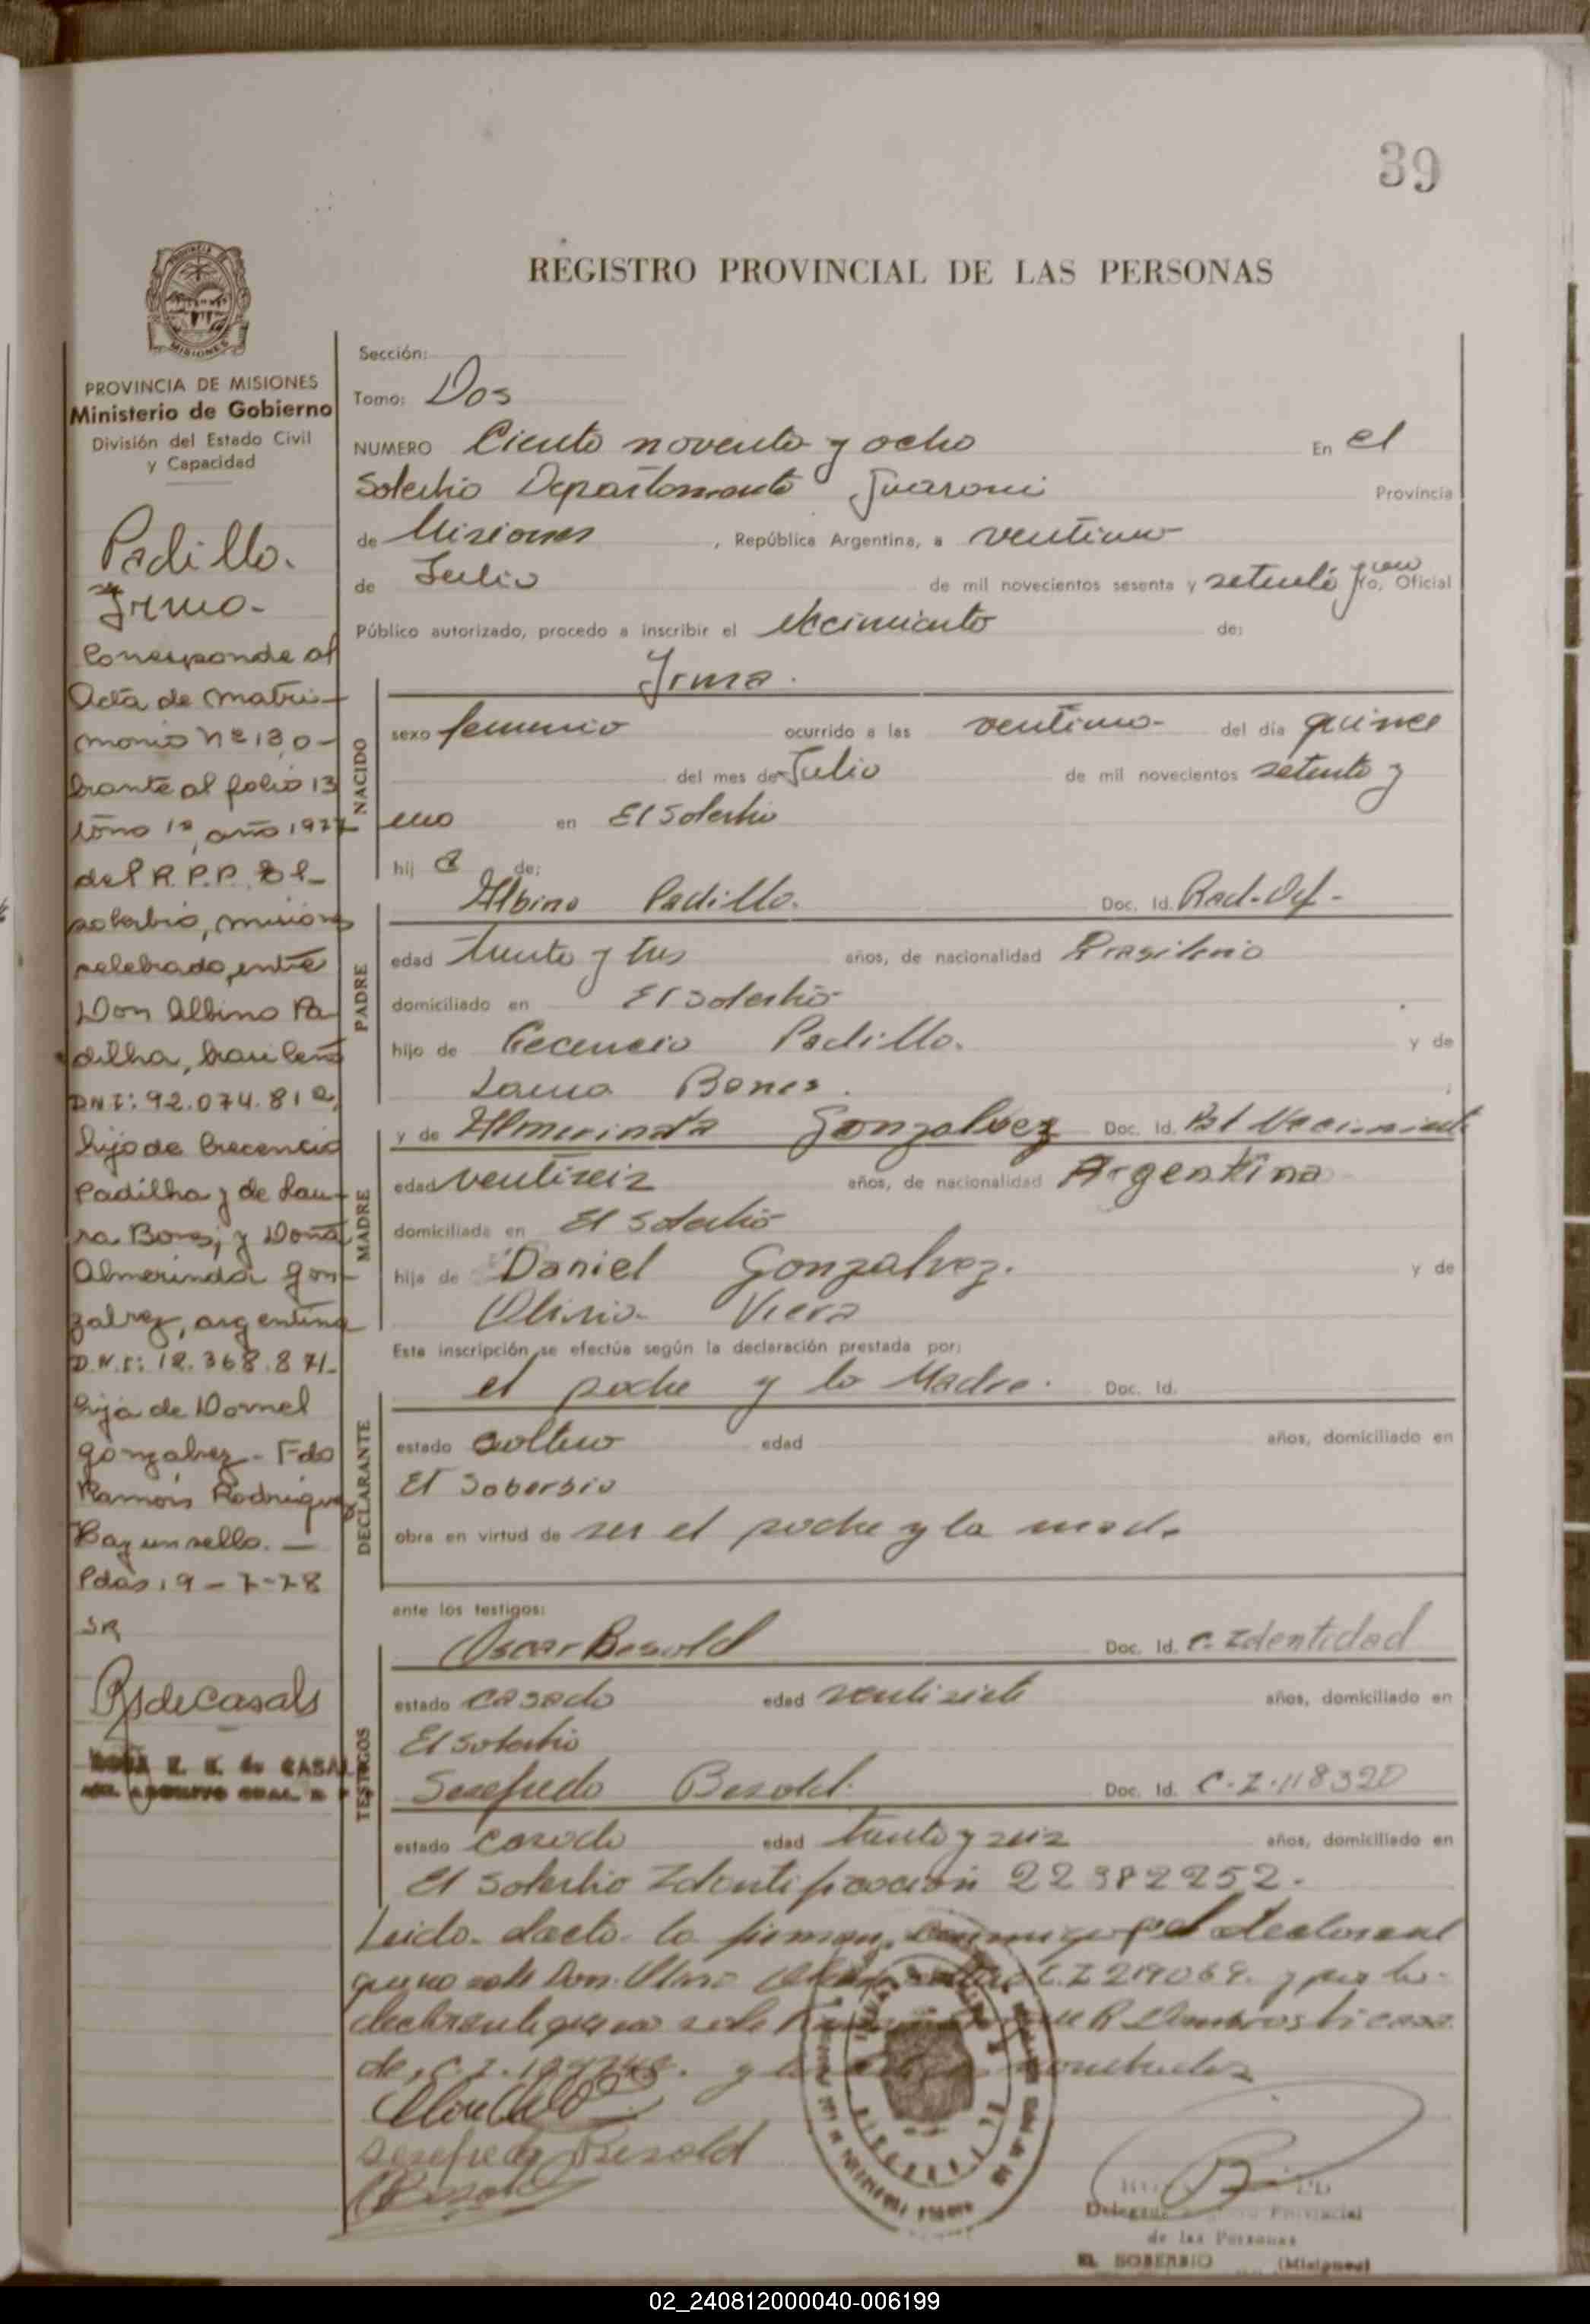 39
REGISTRO PROVINCIAL DE LAS PERSONAS
MISIONES
PROVINCIA DE MISIONES
Ministerio de Gobierno
División del Estado Civil
y Capacidad
Padilla.
Irma.
Corresponde al
Acta de matri-
monio Nº 13, o-
brante al folio 13
tomo 1º, año 1977
del R.P.P. El
soberbio, misiones
celebrado, entre
Don Albino Pa-
dilha, brasileño
DNI: 92.074.812,
hijo de Crecencio
Padilha y de Lau-
ra Bones; y Doña
Almerinda Gon-
zalvez, argentina
D.N.I: 12.368.871-
hija de Dornel
Gonzalvez - Fdo
Ramón Rodriguez
Hay un sello. —
Pdas, 9-7-78
SR
RsdeCasals
Sección:
Tomo: Dos
NUMERO Ciento noventa y ocho En el
Soberbio Departamento Guarani Provincia
de Misiones , República Argentina, a ventiuno
de Julio de mil novecientos sesenta y setenta y uno yo, Oficial
Público autorizado, procedo a inscribir el Nacimiento de:
Irma.
NACIDO
sexo femenino ocurrido a las ventiuna- del día quince
del mes de Julio de mil novecientos setenta y
uno en El Soberbio
hij a de:
Albino Padilla. Doc. Id. Rad. Def-
PADRE
edad treinta y tres años, de nacionalidad Brasileño
domiciliado en El Soberbio
hijo de Crecencio Padilla. y de
Laura Bones.
y de Almerinda Gonzalvez Doc. Id. Pat Nacimiento
MADRE
edad ventiseiz años, de nacionalidad Argentina
domiciliada en El Soberbio
hija de Daniel Gonzalvez. y de
Viera
Esta inscripción se efectúa según la declaración prestada por:
el padre y la Madre. Doc. Id.
DECLARANTE
estado soltero edad años, domiciliado en
El Soberbio
obra en virtud de ser el padre y la madre
ante los testigos:
TESTIGOS
Oscar Besold Doc. Id. C. Identidad
estado casado edad ventisiete años, domiciliado en
El Soberbio
Sesefredo Besold. Doc. Id. C.I.118320
estado casado edad treinta y seiz años, domiciliado en
El Soberbio Identificacion 22382252.
Leida el acta la firman, conmigo por el declarante
que no sabe Don C.I 219069. y por la
declarante que no sabe
de, C.I. y los testigos
Sesefredo Besold
Besold
Delegado Provincial
de las Personas
EL SOBERBIO (Misiones)
02_240812000040-006199